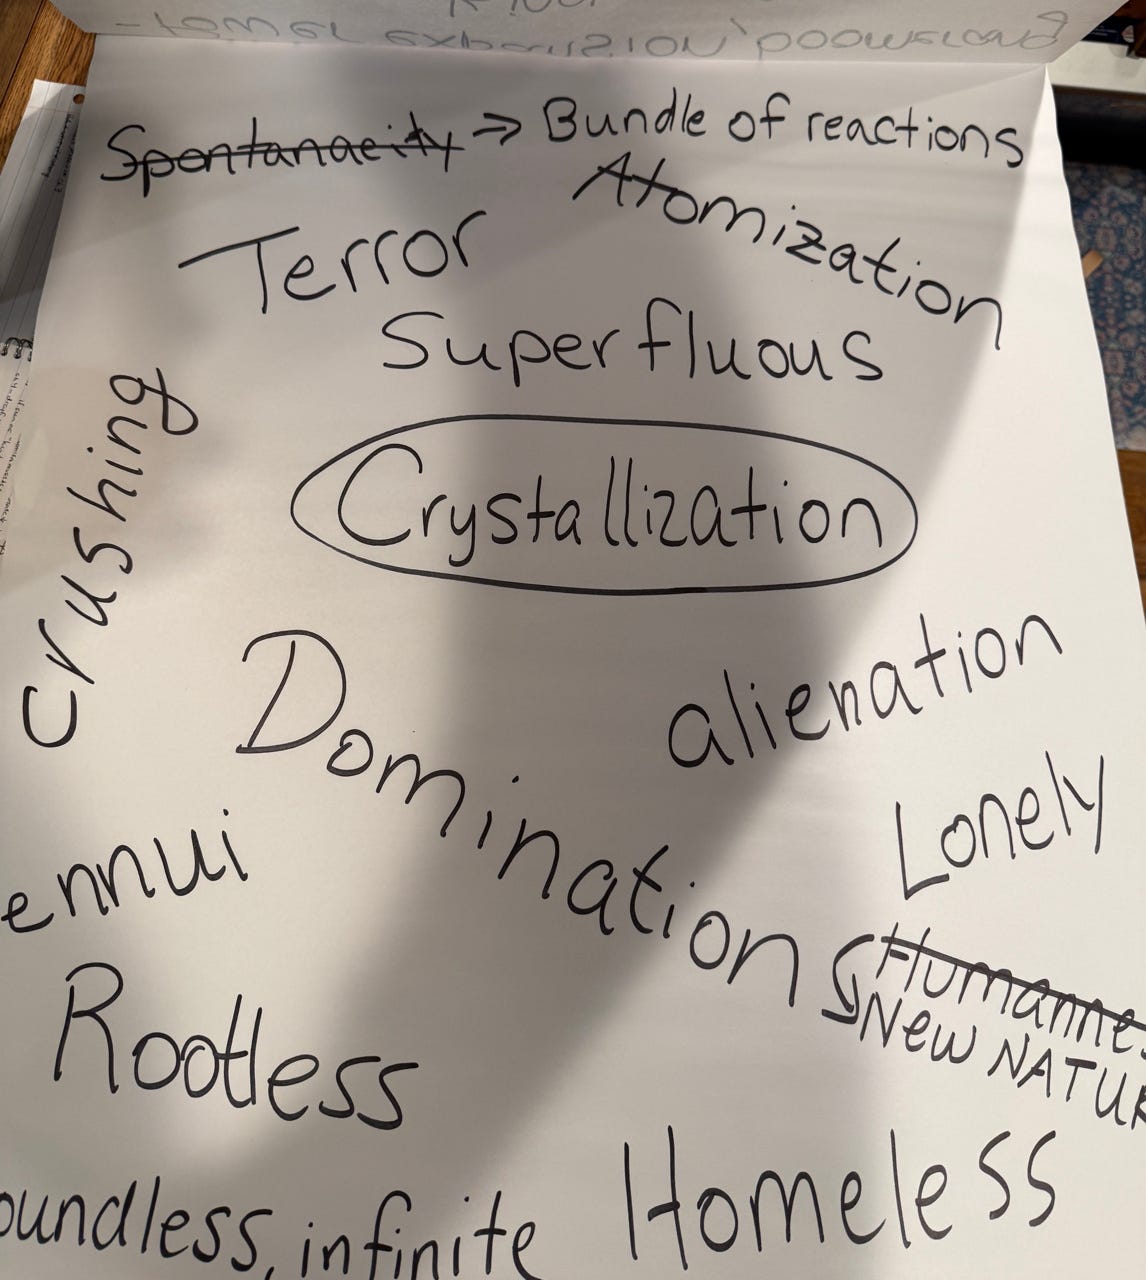 Spontanaeity => Bundle of reactions
Atomization
Terror
Superfluous
crushing
Crystallization
alienation
Domination
Lonely
ennui
Humannes
New NATUR
Rootless
oundless, infinite
Homeless